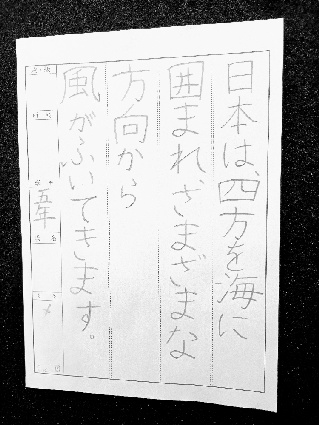 日本は、四方を海に
囲まれざまざまな
方向から
風がふいてきます。
五年